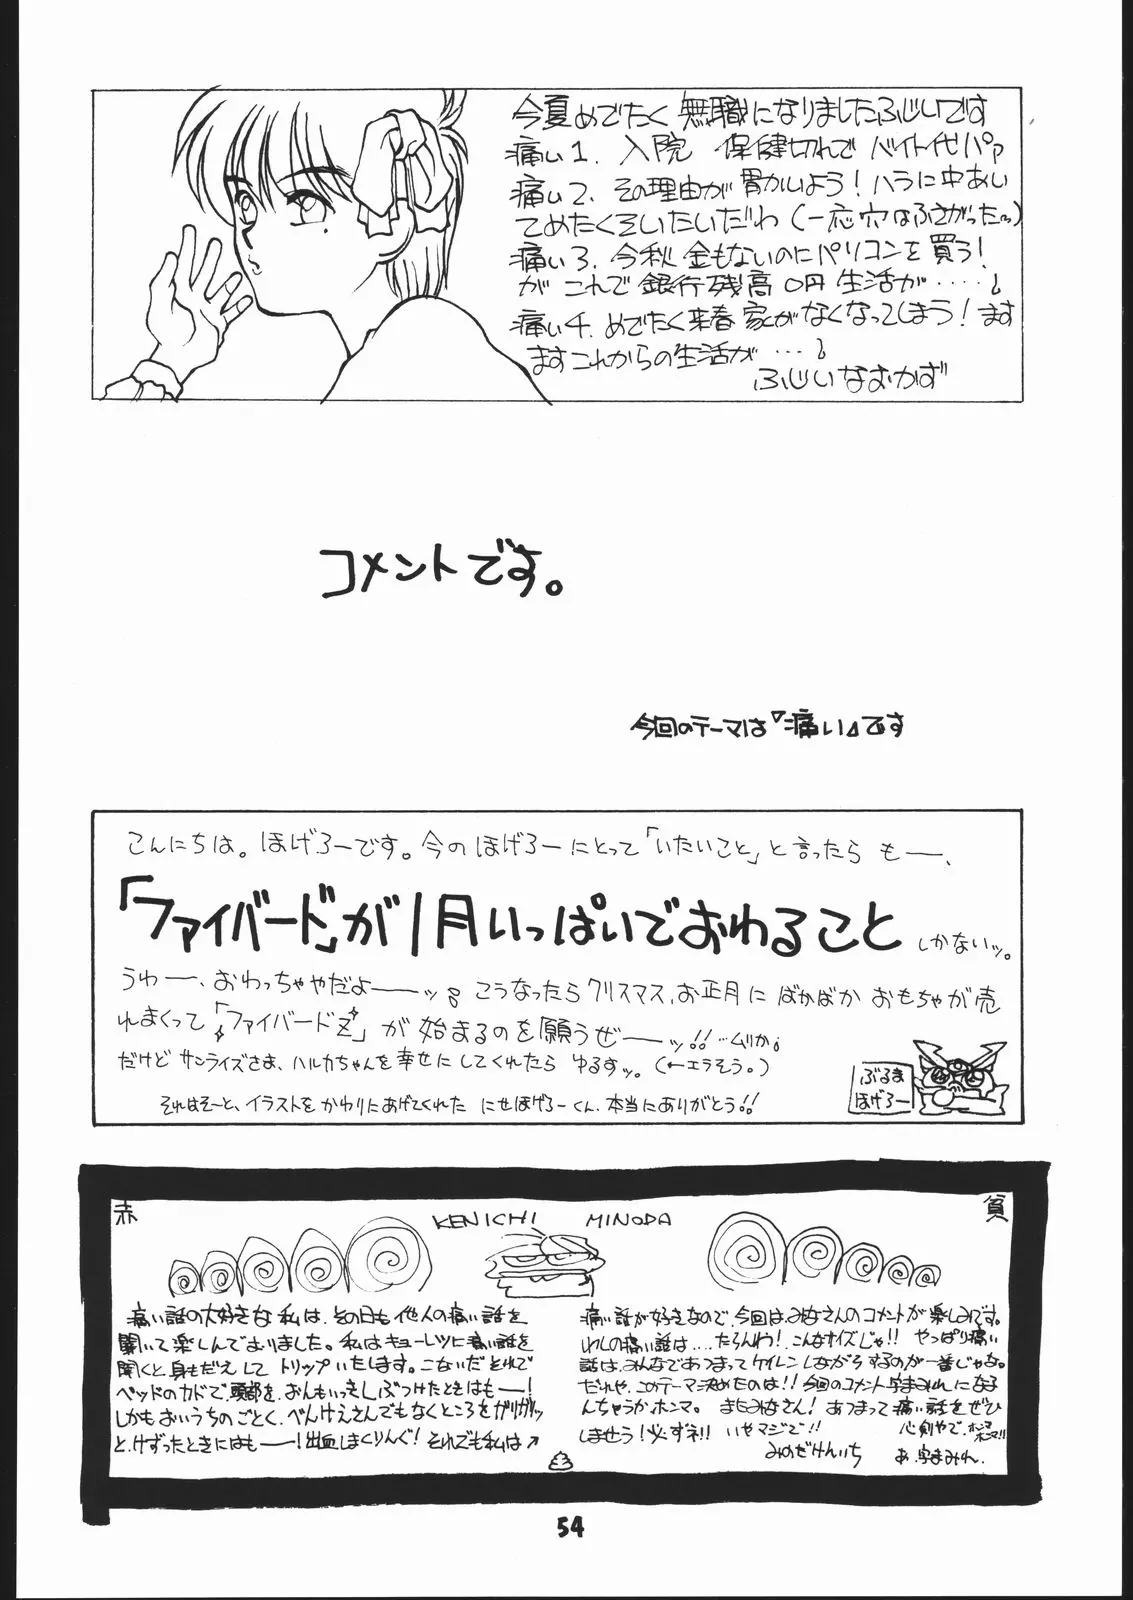 今夏めでたく無職になりましたふじいです
痛い1. 入院 保健切れで バイト代パァ
痛い2. その理由が胃かいよう!ハラに中あい
てめたくそいたいだわ(一応穴はふさがった〜)
痛い3. 今秋金もないのにパソコンを買う!
が これで銀行残高0円 生活が・・・・・
痛い4. めでたく来春家がなくなってしまう!ます
ますこれからの生活が・・・・
ふじいなおかず
コメントです。
今回のテーマは『痛い』です
こんにちは。ほげろーです。今のほげろーにとって「いたいこと」と言ったら もー、
「ファイバード」が1月いっぱいでおわること しかないッ。
うわー、おわっちゃやだよーーッ。こうなったらクリスマス、お正月にばかばかおもちゃが売
れまくって「ファイバードZ」が始まるのを願うぜーーッ!!…ムリか。
だけどサンライズさま、ハルカちゃんを幸せにしてくれたら ゆるすッ。(←エラそう。)
それはそーと、イラストをかわりにあげてくれた にせほげろーくん、本当にありがとう!!
ぶるま
ほげろー
赤
KENICHI MINODA
貧
痛い話の大好きな私は、その日も他人の痛い話を
聞いて楽しんでおりました。私はキョーレツに痛い話を
聞くと、身もだえして トリップいたします。こないだそれで
ベッドのカドで、頭部を、おんもいっきしぶつけたときはもー!
しかもおいうちのごとく、べんけえさんでもなくところをガリガリッ
と、けずったときにはもー!出血しまくりんぐ!それでも私は↗
痛い話が好きなので、今回はみなさんのコメントが楽しみです。
わしの痛い話は...たらんわ!こんなサイズじゃ!!やっぱり痛い
話は、みんなであつまってケイレンしながらするのが一番じゃな。
だれや、このテーマ決めたのは!!今回のコメント字まみれになる
んちゃうか、ホンマ。またみなさん!あつまって痛い話をぜひ
しませう!必ずネ!!いやマジで!!
心剣やで、ホンマホンマ!!
みのだけんいち
あ、字まみれ、
54